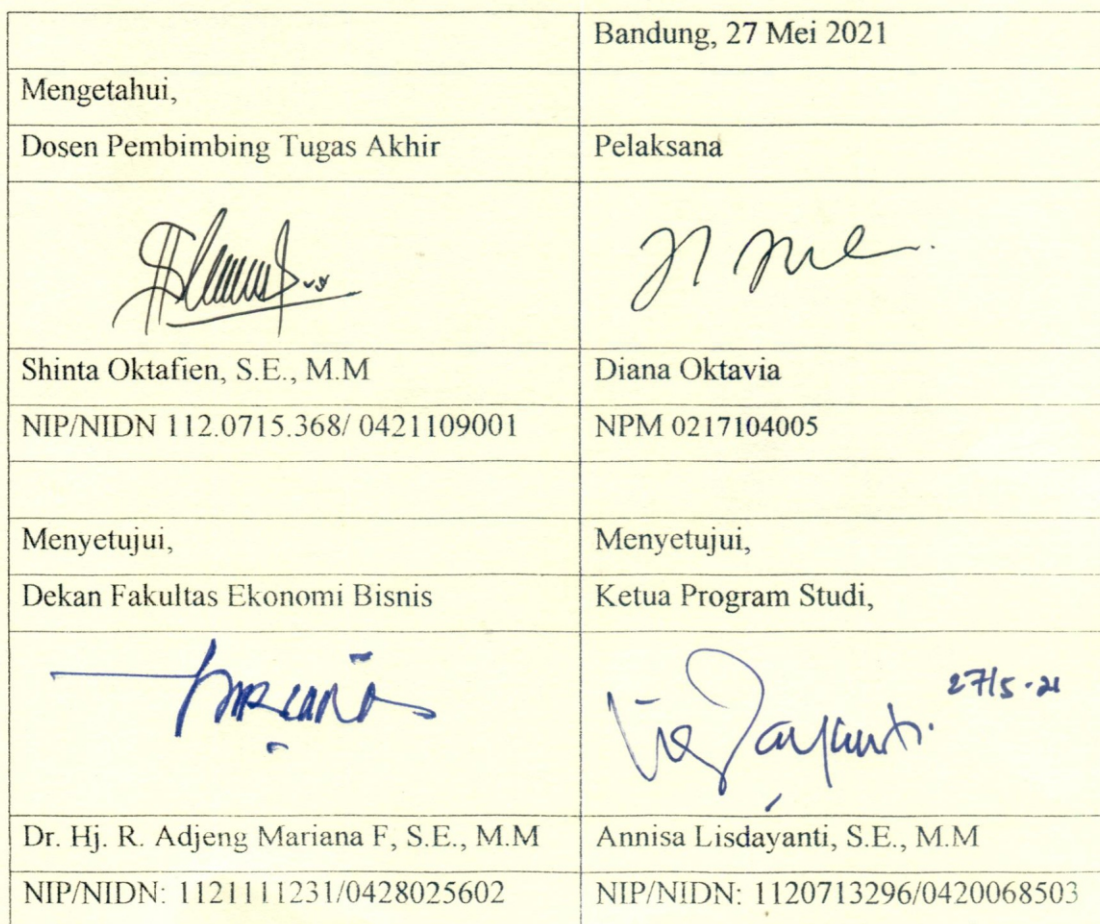 Bandung, 27 Mei 2021
Mengetahui,
Dosen Pembimbing Tugas Akhir
Pelaksana
Shinta Oktafien, S.E., M.M
Diana Oktavia
NIP/NIDN 112.0715.368/ 0421109001
NPM 0217104005
Menyetujui,
Menyetujui,
Dekan Fakultas Ekonomi Bisnis
Ketua Program Studi,
27/5-21
Dr. Hj. R. Adjeng Mariana F, S.E., M.M
Annisa Lisdayanti, S.E., M.M
NIP/NIDN: 1121111231/0428025602
NIP/NIDN: 1120713296/0420068503